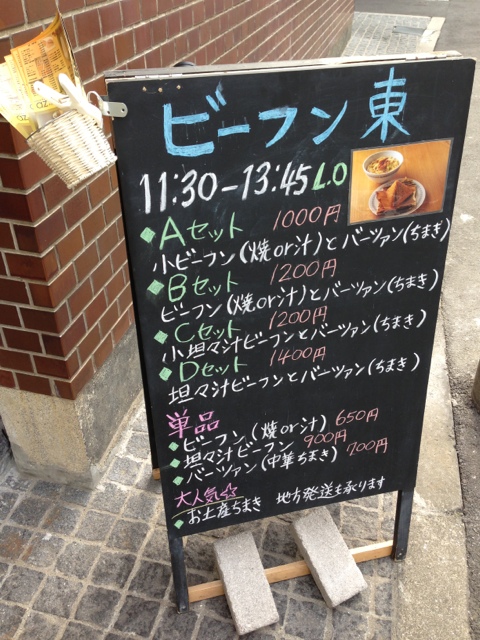 ビーフン 東
11:30-13:45 L.O
◆Aセット 1000円
小ビーフン(焼or汁)とバーツァン(ちまき)
◆Bセット 1200円
ビーフン(焼or汁)とバーツァン(ちまき)
◆Cセット 1200円
小坦々汁ビーフンとバーツァン(ちまき)
◆Dセット 1400円
坦々汁ビーフンとバーツァン(ちまき)
単品
◆ビーフン(焼or汁) 650円
◆坦々汁ビーフン 900円
◆バーツァン(中華ちまき) 700円
大人気☆
◆お土産ちまき 地方発送も承ります